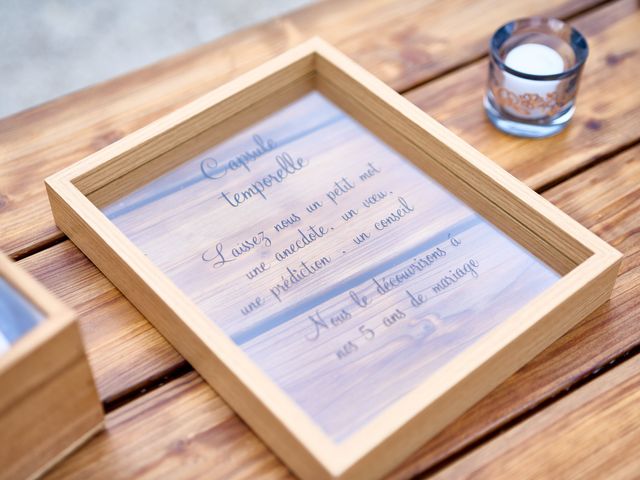 Capsule
temporelle
Laissez nous un petit mot
une anecdote, un vœu,
une prédiction, un conseil
Nous le découvrirons à
nos 5 ans de mariage